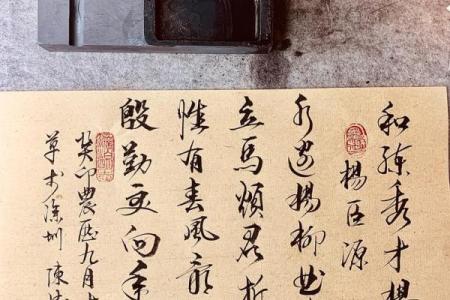 和練秀才楊
楊巨源
水邊楊柳曲
立馬煩君折
惟有春風最
殷勤更向手
癸卯農歷九月
草於深圳 陳